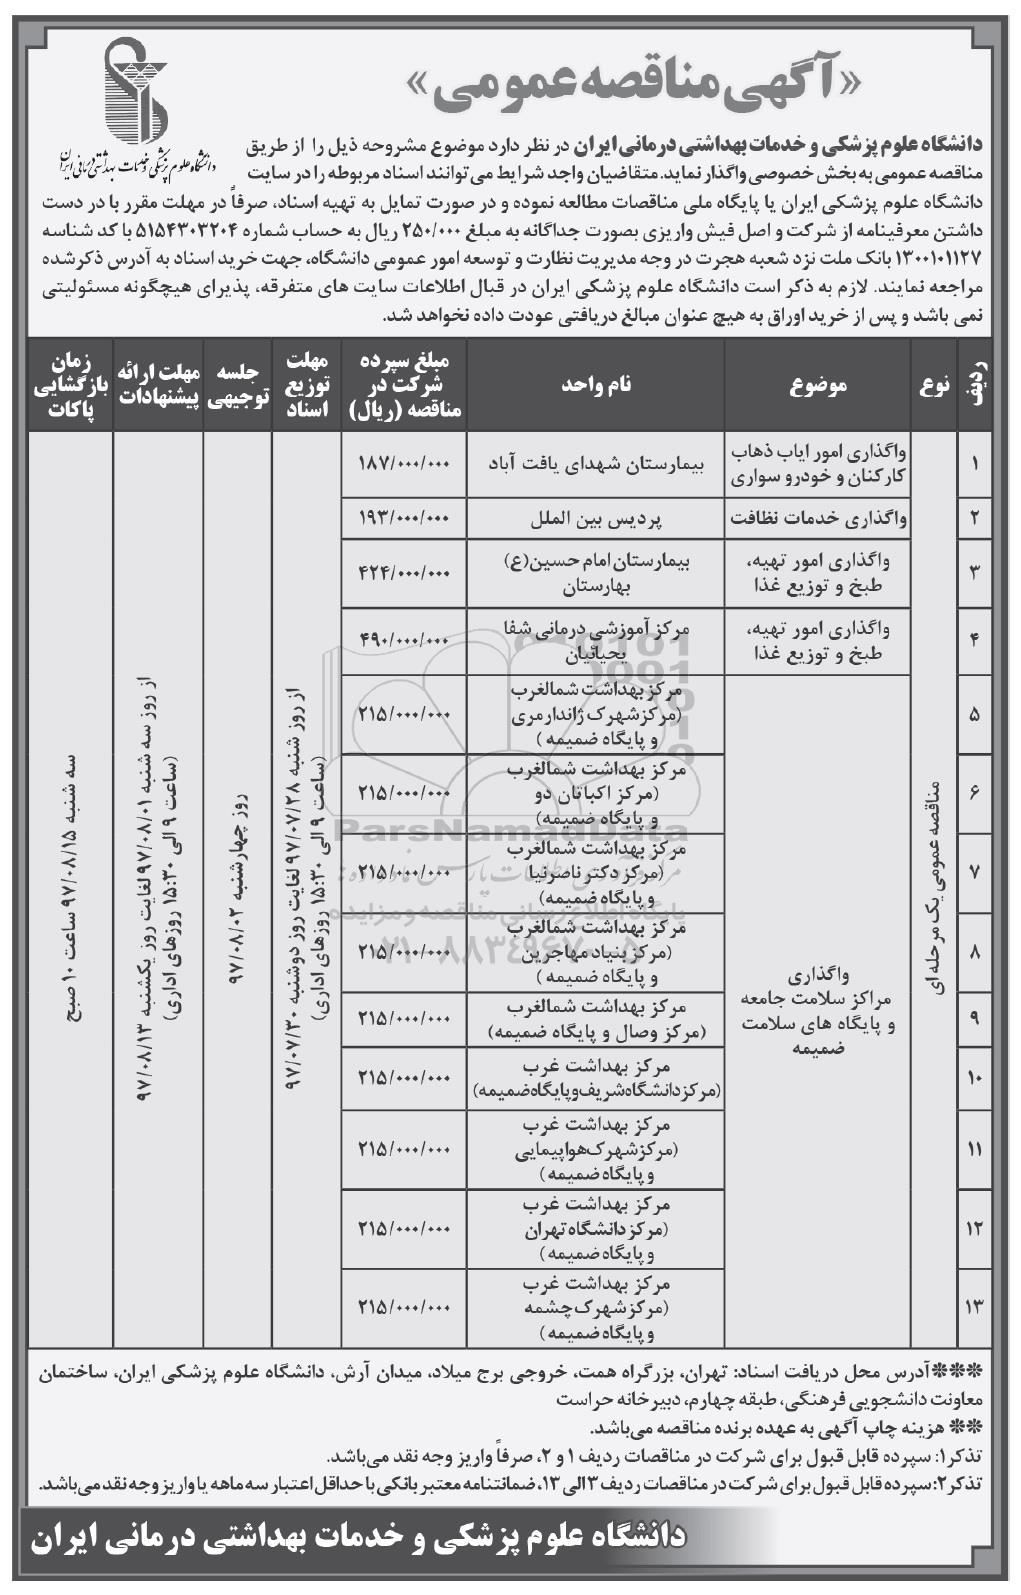 «آگهی مناقصه عمومی»
دانشگاه علوم پزشکی و خدمات بهداشتی درمانی ایران
دانشگاه علوم پزشکی و خدمات بهداشتی درمانی ایران در نظر دارد موضوع مشروحه ذیل را از طریق
مناقصه عمومی به بخش خصوصی واگذار نماید. متقاضیان واجد شرایط می‌توانند اسناد مربوطه را در سایت
دانشگاه علوم پزشکی ایران یا پایگاه ملی مناقصات مطالعه نموده و در صورت تمایل به تهیه اسناد، صرفاً در مهلت مقرر با در دست
داشتن معرفینامه از شرکت و اصل فیش واریزی بصورت جداگانه به مبلغ ۲۵۰/۰۰۰ ریال به حساب شماره ۵۱۵۴۳۰۳۲۰۴ با کد شناسه
۱۳۰۰۱۰۱۱۲۷ بانک ملت نزد شعبه هجرت در وجه مدیریت نظارت و توسعه امور عمومی دانشگاه، جهت خرید اسناد به آدرس ذکرشده
مراجعه نمایند. لازم به ذکر است دانشگاه علوم پزشکی ایران در قبال اطلاعات سایت های متفرقه، پذیرای هیچگونه مسئولیتی
نمی باشد و پس از خرید اوراق به هیچ عنوان مبالغ دریافتی عودت داده نخواهد شد.
ردیف
نوع
موضوع
نام واحد
مبلغ سپرده
شرکت در
مناقصه (ریال)
مهلت
توزیع
اسناد
جلسه
توجیهی
مهلت ارائه
پیشنهادات
زمان
بازگشایی
پاکات
مناقصه عمومی یک مرحله ای
۱
واگذاری امور ایاب ذهاب
کارکنان و خودرو سواری
بیمارستان شهدای یافت آباد
۱۸۷/۰۰۰/۰۰۰
۲
واگذاری خدمات نظافت
پردیس بین الملل
۱۹۳/۰۰۰/۰۰۰
۳
واگذاری امور تهیه،
طبخ و توزیع غذا
بیمارستان امام حسین(ع)
بهارستان
۴۲۴/۰۰۰/۰۰۰
۴
واگذاری امور تهیه،
طبخ و توزیع غذا
مرکز آموزشی درمانی شفا
یحیائیان
۴۹۰/۰۰۰/۰۰۰
واگذاری
مراکز سلامت جامعه
و پایگاه های سلامت
ضمیمه
۵
مرکز بهداشت شمالغرب
(مرکز شهرک ژاندارمری
و پایگاه ضمیمه )
۲۱۵/۰۰۰/۰۰۰
۶
مرکز بهداشت شمالغرب
(مرکز اکباتان دو
و پایگاه ضمیمه)
۲۱۵/۰۰۰/۰۰۰
۷
مرکز بهداشت شمالغرب
(مرکز دکتر ناصرنیا
و پایگاه ضمیمه)
۲۱۵/۰۰۰/۰۰۰
۸
مرکز بهداشت شمالغرب
(مرکز بنیاد مهاجرین
و پایگاه ضمیمه )
۲۱۵/۰۰۰/۰۰۰
۹
مرکز بهداشت شمالغرب
(مرکز وصال و پایگاه ضمیمه)
۲۱۵/۰۰۰/۰۰۰
۱۰
مرکز بهداشت غرب
(مرکز دانشگاه شریف و پایگاه ضمیمه)
۲۱۵/۰۰۰/۰۰۰
۱۱
مرکز بهداشت غرب
(مرکز شهرک هواپیمایی
و پایگاه ضمیمه )
۲۱۵/۰۰۰/۰۰۰
۱۲
مرکز بهداشت غرب
(مرکز دانشگاه تهران
و پایگاه ضمیمه )
۲۱۵/۰۰۰/۰۰۰
۱۳
مرکز بهداشت غرب
(مرکز شهرک چشمه
و پایگاه ضمیمه )
۲۱۵/۰۰۰/۰۰۰
از روز شنبه ۹۷/۰۷/۲۸ لغایت روز دوشنبه ۹۷/۰۷/۳۰
(ساعت ۹ الی ۱۵:۳۰ روزهای اداری)
روز چهارشنبه ۹۷/۰۸/۰۲
از روز سه شنبه ۹۷/۰۸/۰۱ لغایت روز یکشنبه ۹۷/۰۸/۱۳
(ساعت ۹ الی ۱۵:۳۰ روزهای اداری)
سه شنبه ۹۷/۰۸/۱۵ ساعت ۱۰ صبح
ParsNamadData
پایگاه اطلاع رسانی مناقصه و مزایده
۰۲۱-۸۸۳۴۹۶۷۰-۵
***آدرس محل دریافت اسناد: تهران، بزرگراه همت، خروجی برج میلاد، میدان آرش، دانشگاه علوم پزشکی ایران، ساختمان
معاونت دانشجویی فرهنگی، طبقه چهارم، دبیرخانه حراست
** هزینه چاپ آگهی به عهده برنده مناقصه می‌باشد.
تذکر۱: سپرده قابل قبول برای شرکت در مناقصات ردیف ۱ و ۲، صرفاً واریز وجه نقد می‌باشد.
تذکر۲: سپرده قابل قبول برای شرکت در مناقصات ردیف ۳ الی ۱۳، ضمانتنامه معتبر بانکی با حداقل اعتبار سه ماهه یا واریز وجه نقد می‌باشد.
دانشگاه علوم پزشکی و خدمات بهداشتی درمانی ایران